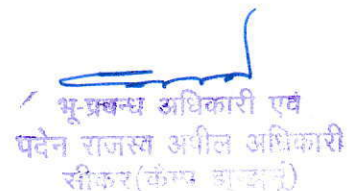 भू-प्रबन्ध अधिकारी एवं
पदेन राजस्व अपील अधिकारी
सीकर(कैम्प